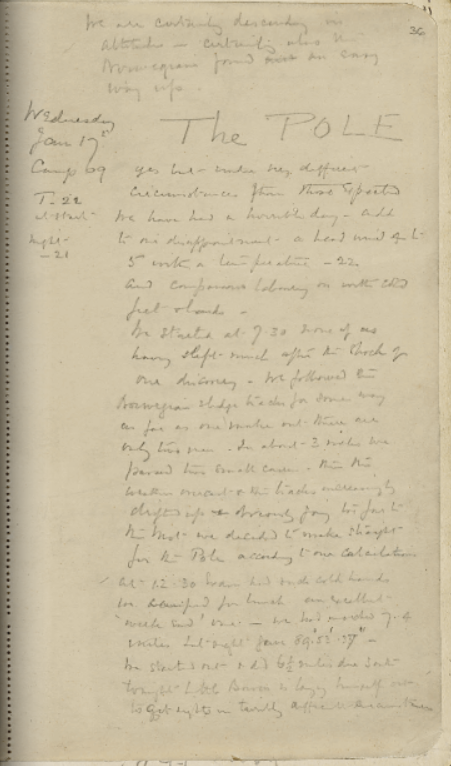 36
We are certainly descending in
altitude - certainly also the
Norwegians found an easy
way up.
Wednesday
Jan 17
Camp 69
T. -22
at start
Night -
-21
The POLE
Yes but under very different
circumstances from those expected
We have had a horrible day - add
to our disappointment a head wind 4 to
5 with a temperature -22
and companions labouring on with cold
feet & hands -
We started at 7.30 none of us
having slept much after the shock of
our discovery - We followed the
Norwegian sledge tracks for some way
as far as we make out there are
only two men. In about 3 miles we
passed two small cairns. Then the
weather overcast & the tracks increasingly
drifted up & obviously going too far to
the West we decided to make straight
for the Pole according to our calculations
At 12.30 Evans had such cold hands
we camped for lunch an excellent
'week end' one - we had marched 7.4
miles Lat sight gave 89°.53'.37" -
We started out & did 6½ miles due South
Tonight little Bowers is laying himself out
to get sights in terribly difficult circumstances